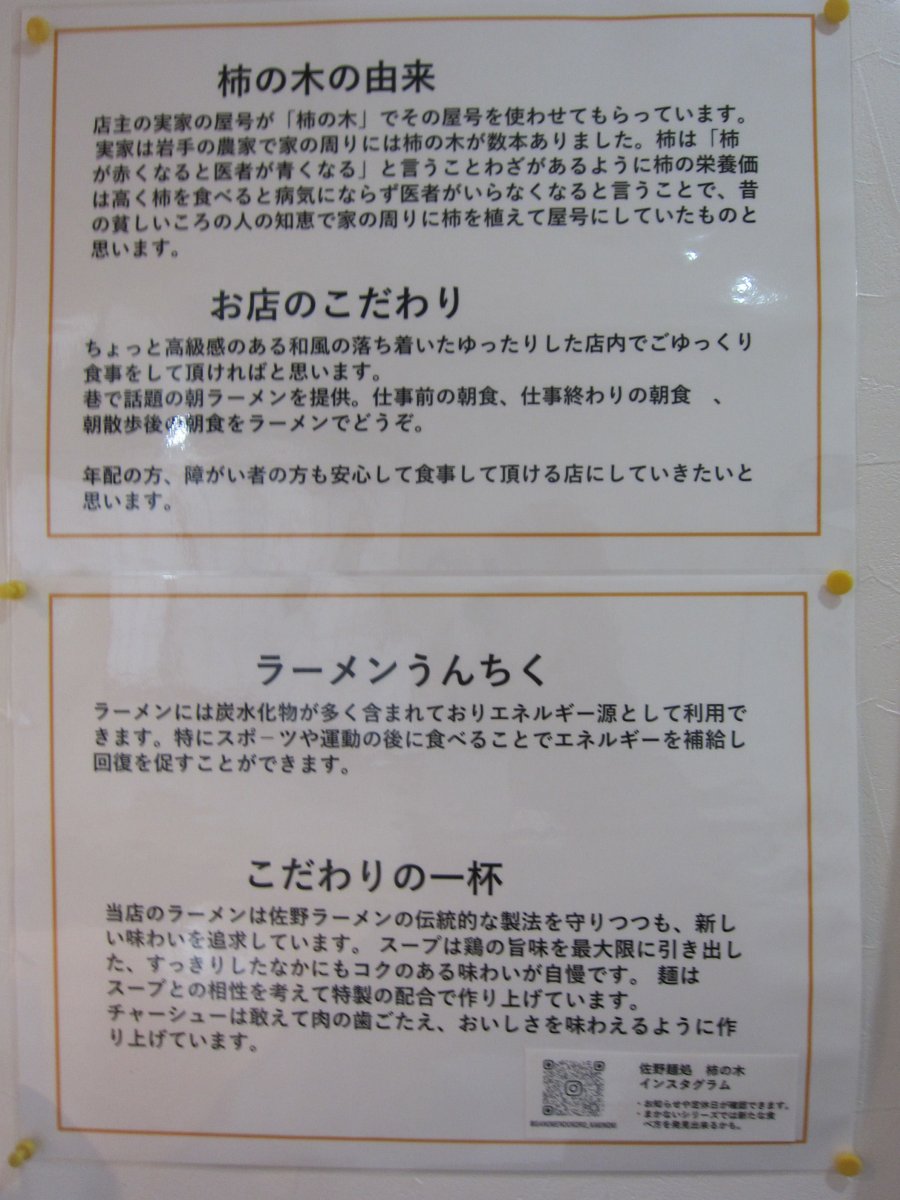 柿の木の由来
店主の実家の屋号が「柿の木」でその屋号を使わせてもらっています。
実家は岩手の農家で家の周りには柿の木が数本ありました。柿は「柿
が赤くなると医者が青くなる」と言うことわざがあるように柿の栄養価
は高く柿を食べると病気にならず医者がいらなくなると言うことで、昔
の貧しいころの人の知恵で家の周りに柿を植えて屋号にしていたものと
思います。
お店のこだわり
ちょっと高級感のある和風の落ち着いたゆったりした店内でごゆっくり
食事をして頂ければと思います。
巷で話題の朝ラーメンを提供。仕事前の朝食、仕事終わりの朝食　、
朝散歩後の朝食をラーメンでどうぞ。
年配の方、障がい者の方も安心して食事して頂ける店にしていきたいと
思います。
ラーメンうんちく
ラーメンには炭水化物が多く含まれておりエネルギー源として利用で
きます。特にスポーツや運動の後に食べることでエネルギーを補給し
回復を促すことができます。
こだわりの一杯
当店のラーメンは佐野ラーメンの伝統的な製法を守りつつも、新し
い味わいを追求しています。 スープは鶏の旨味を最大限に引き出し
た、すっきりしたなかにもコクのある味わいが自慢です。 麺は
スープとの相性を考えて特製の配合で作り上げています。
チャーシューは敢えて肉の歯ごたえ、おいしさを味わえるように作
り上げています。
佐野麺処　柿の木
インスタグラム
・お知らせや定休日が確認できます。
・まかないシリーズでは新たな食
べ方を発見出来るかも。